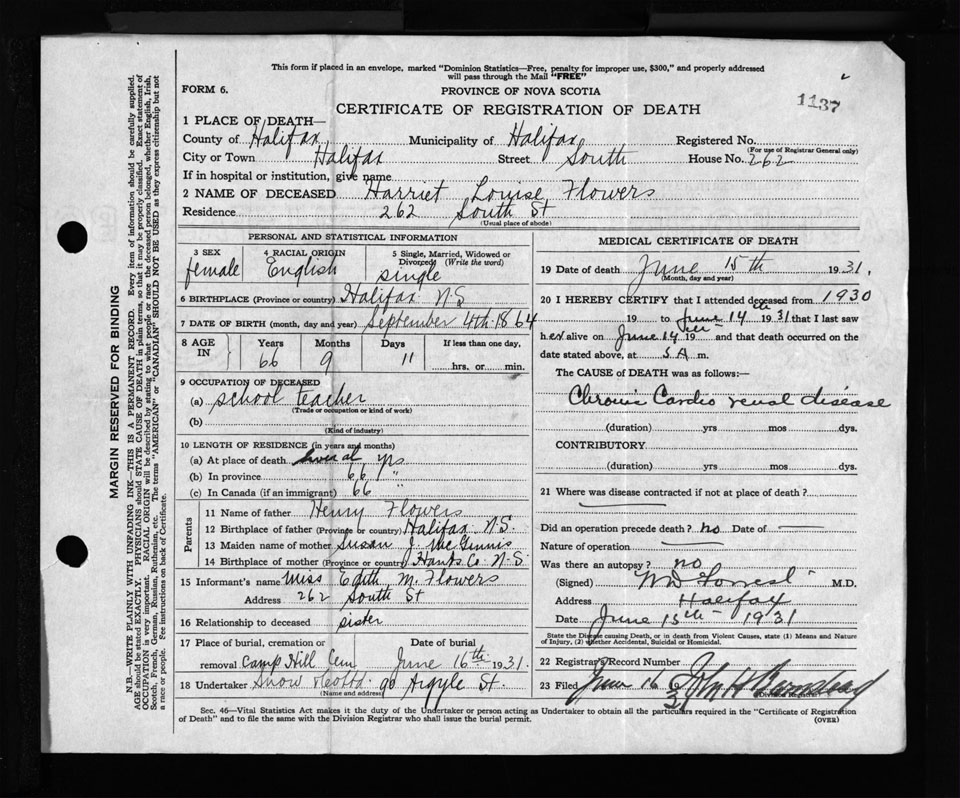 This form if placed in an envelope, marked "Dominion Statistics—Free, penalty for improper use, $300," and properly addressed
will pass through the Mail "FREE"
FORM 6.
PROVINCE OF NOVA SCOTIA
1137
CERTIFICATE OF REGISTRATION OF DEATH
1 PLACE OF DEATH—
County of Halifax Municipality of Halifax Registered No.
(For use of Registrar General only)
City or Town Halifax Street South House No. 262
If in hospital or institution, give name
2 NAME OF DECEASED Harriet Louise Flowers
Residence 262 South St
(Usual place of abode)
PERSONAL AND STATISTICAL INFORMATION
3 SEX female
4 RACIAL ORIGIN English
5 Single, Married, Widowed or Divorced (Write the word) single
6 BIRTHPLACE (Province or country) Halifax N.S
7 DATE OF BIRTH (month, day and year) September 4th 1864
8 AGE IN Years Months Days If less than one day,
66 9 11 hrs. or min.
9 OCCUPATION OF DECEASED
(a) school teacher
(Trade or occupation or kind of work)
(b)
(Kind of industry)
10 LENGTH OF RESIDENCE (in years and months)
(a) At place of death yrs
(b) In province 66 "
(c) In Canada (if an immigrant) 66 "
Parents
11 Name of father Henry Flowers
12 Birthplace of father (Province or country) Halifax N.S.
13 Maiden name of mother Susan J. McGinnis
14 Birthplace of mother (Province or country) Hants Co N.S
15 Informant's name Miss Edith M. Flowers
Address 262 South St
16 Relationship to deceased sister
17 Place of burial, cremation or Date of burial
removal Camp Hill Cem June 16th 1931.
18 Undertaker Snow & Co Ltd. 90 Argyle St.
(Name and address)
MEDICAL CERTIFICATE OF DEATH
19 Date of death June 15th 1931.
(Month, day and year)
20 I HEREBY CERTIFY that I attended deceased from 1930
19 to June 14th 1931 that I last saw
her alive on June 14th 19 and that death occurred on the
date stated above, at 5 A m.
The CAUSE OF DEATH was as follows:—
Chronic Cardio renal disease
(duration) yrs mos dys.
CONTRIBUTORY
(duration) yrs mos dys.
21 Where was disease contracted if not at place of death?
Did an operation precede death? no Date of —
Nature of operation
Was there an autopsy? no
(Signed) W D Forrest M.D.
Address Halifax
Date June 15th 1931
State the Disease causing Death, or in death from Violent Causes, state (1) Means and Nature
of Injury, (2) whether Accidental, Suicidal or Homicidal.
22 Registrar's Record Number
23 Filed June 16 31 John H Barnstead
Division Registrar
Sec. 46—Vital Statistics Act makes it the duty of the Undertaker or person acting as Undertaker to obtain all the particulars required in the "Certificate of Registration
of Death" and to file the same with the Division Registrar who shall issue the burial permit.
(OVER)
MARGIN RESERVED FOR BINDING
N.B.—WRITE PLAINLY WITH UNFADING INK—THIS IS A PERMANENT RECORD. Every item of information should be carefully supplied.
AGE should be stated EXACTLY. PHYSICIANS should STATE CAUSE OF DEATH in plain terms, so that it may be properly classified. Exact statement of
OCCUPATION is very important. RACIAL ORIGIN will be described by stating to what people or race the deceased person belonged, whether English, Irish,
Scotch, French, German, Russian, Ruthenian, etc. The terms "AMERICAN" or "CANADIAN" SHOULD NOT BE USED as they express citizenship but not
a race or people. See instructions on back of Certificate.